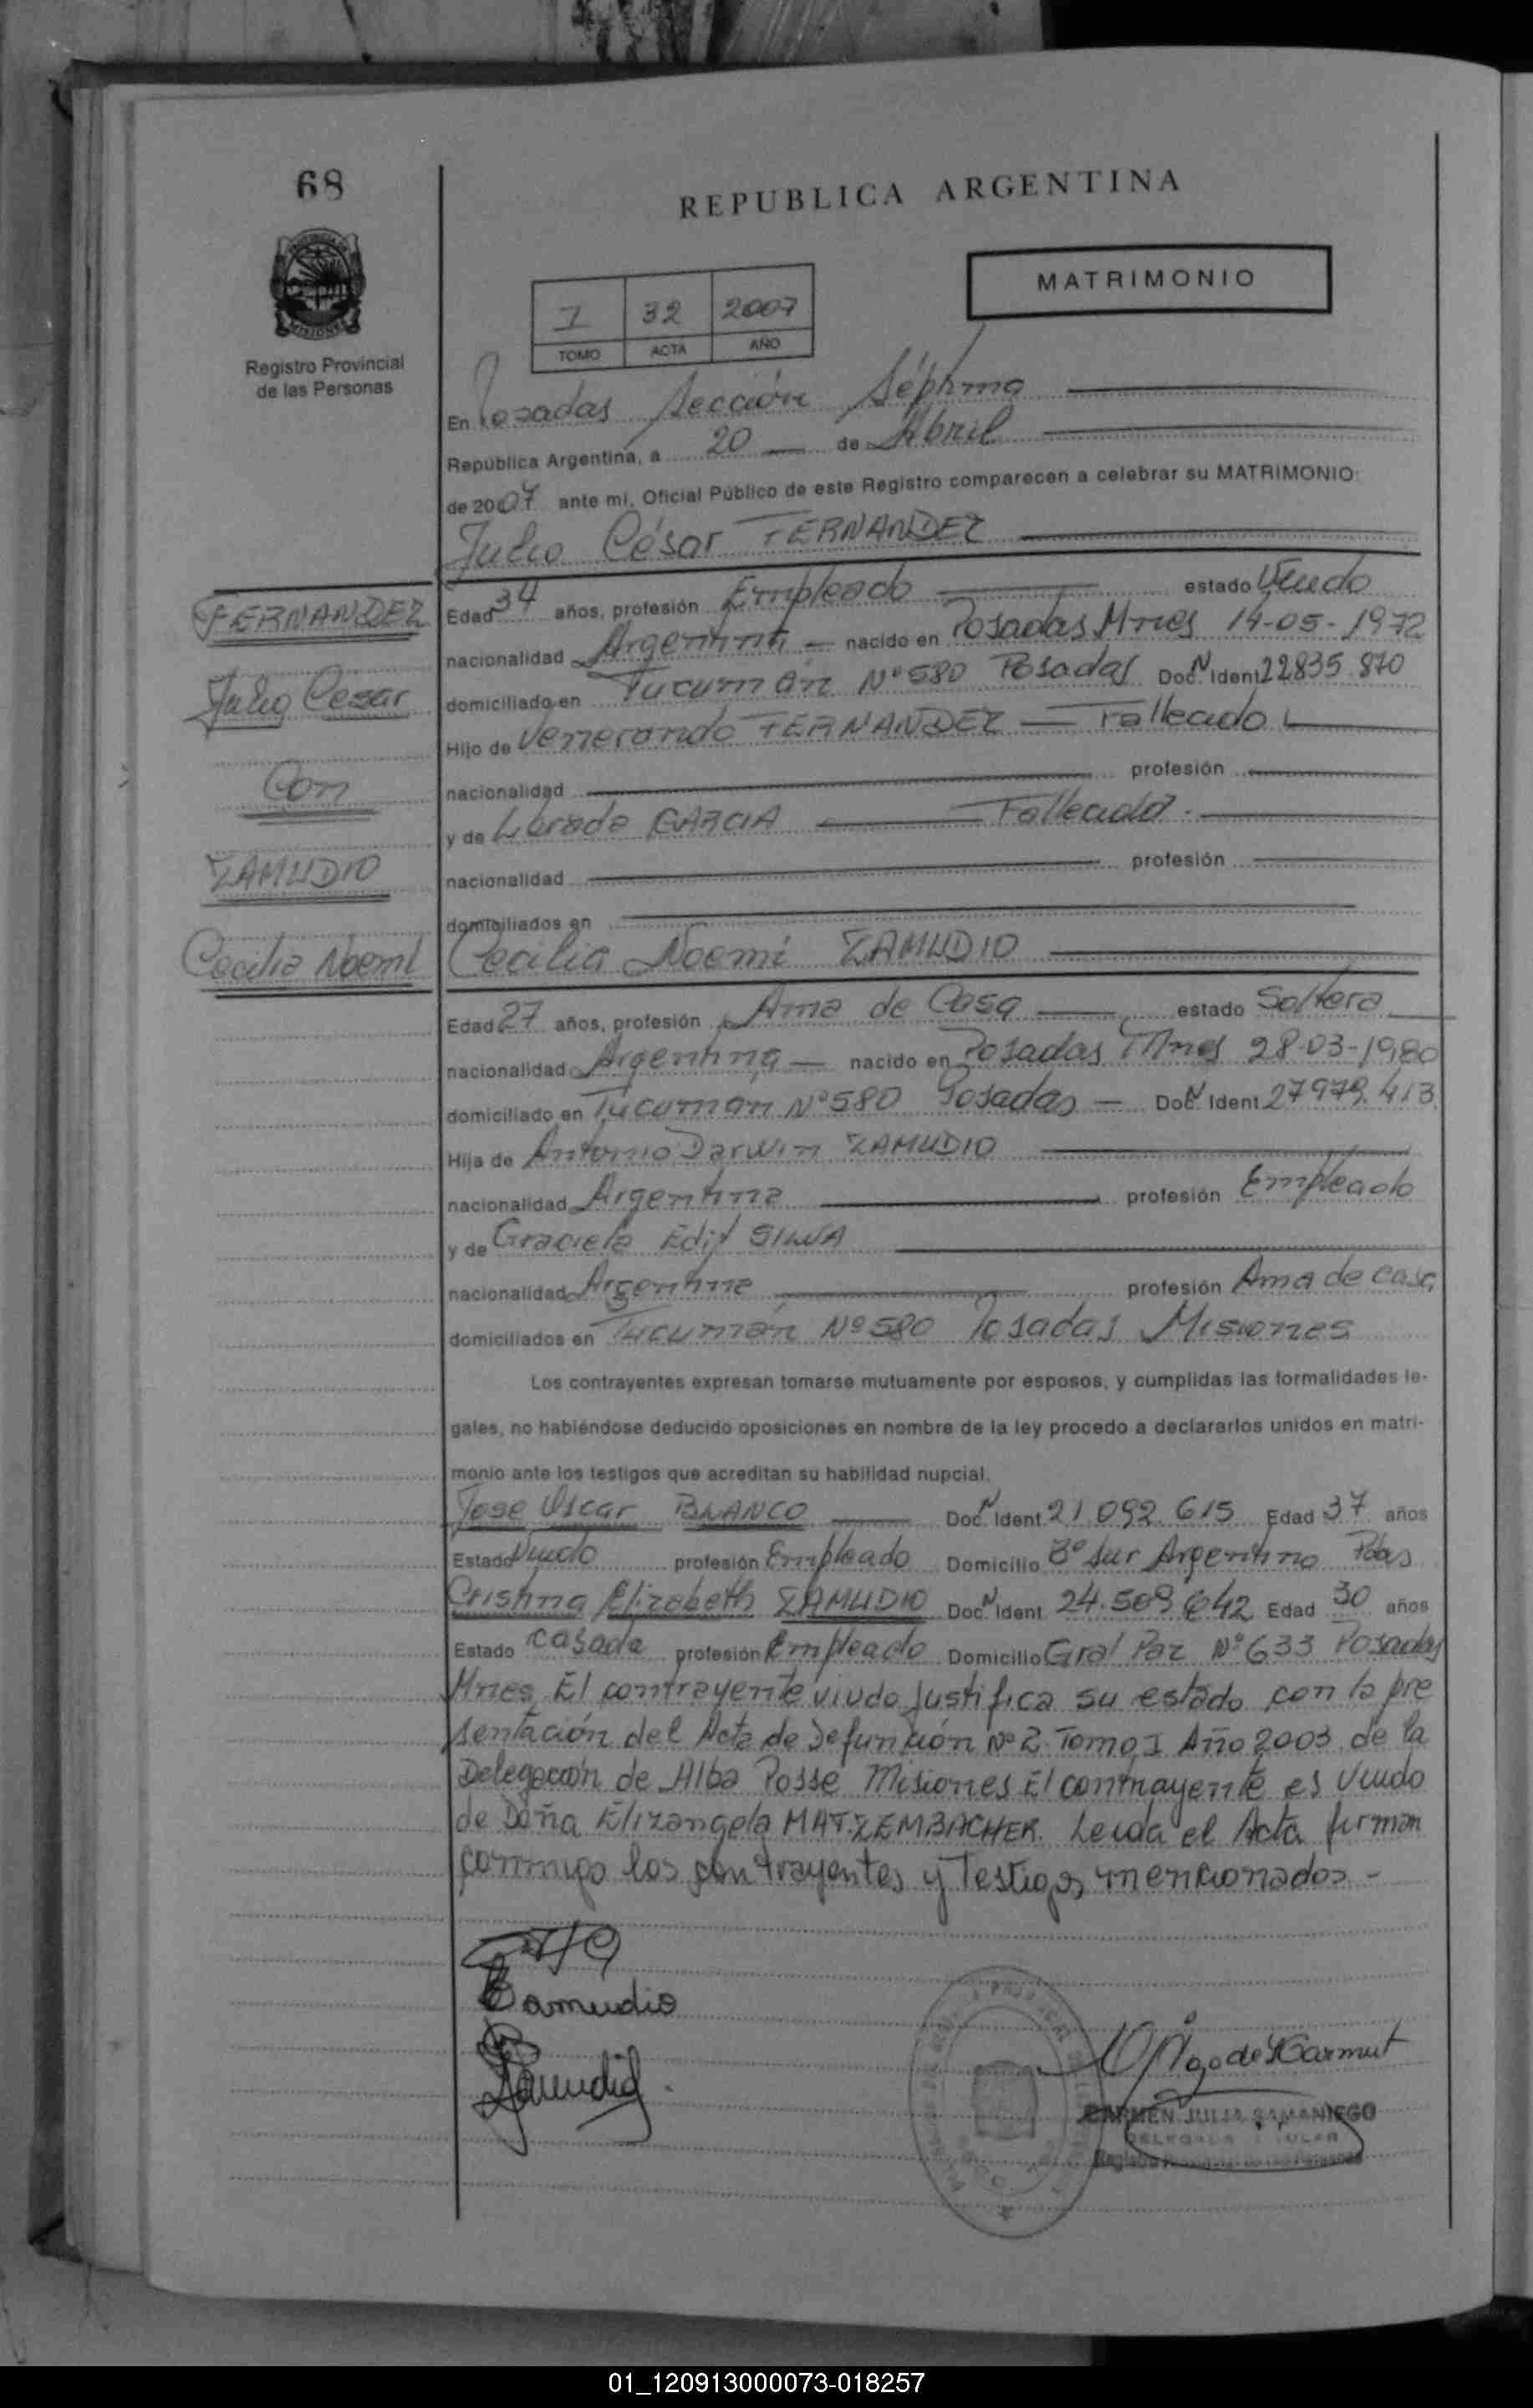 68
REPUBLICA ARGENTINA
MATRIMONIO
PROVINCIA DE
MISIONES
Registro Provincial
de las Personas
I 32 2007
TOMO ACTA AÑO
En Posadas Sección Séptima
República Argentina, a 20 de Abril
de 2007 ante mí, Oficial Público de este Registro comparecen a celebrar su MATRIMONIO:
Julio César FERNANDEZ
FERNANDEZ
Julio Cesar
Con
ZAMUDIO
Cecilia Noemi
Edad 34 años, profesión Empleado estado Viudo
nacionalidad Argentina nacido en Posadas Mnes 14-05-1972
domiciliado en Tucumán Nº 580 Posadas Doc. N Ident 22835.870
Hijo de Venerando FERNANDEZ Fallecido
nacionalidad profesión
y de GARCIA Fallecida
nacionalidad profesión
domiciliados en
Cecilia Noemi ZAMUDIO
Edad 27 años, profesión Ama de Casa estado Soltera
nacionalidad Argentina nacido en Posadas Mnes 28-03-1980
domiciliado en Tucumán Nº 580 Posadas Doc. N Ident 27979.413
Hija de Antonio Darwin ZAMUDIO
nacionalidad Argentina profesión Empleado
y de Graciela Edit SILVA
nacionalidad Argentina profesión Ama de casa
domiciliados en Tucumán Nº 580 Posadas Misiones
Los contrayentes expresan tomarse mutuamente por esposos, y cumplidas las formalidades le-
gales, no habiéndose deducido oposiciones en nombre de la ley procedo a declararlos unidos en matri-
monio ante los testigos que acreditan su habilidad nupcial.
Jose Oscar BLANCO Doc. N Ident 21.092.615 Edad 37 años
Estado Viudo profesión Empleado Domicilio Bº Sur Argentino Pdas
Cristina Elizabeth ZAMUDIO Doc. N Ident 24.509.642 Edad 30 años
Estado casada profesión Empleado Domicilio Gral Paz Nº 633 Posadas
Mnes. El contrayente viudo justifica su estado con la pre
sentación del Acta de Defunción Nº 2 Tomo I Año 2003 de la
Delegación de Alba Posse Misiones El contrayente es viudo
de Doña Elizangela MATZEMBACHER. Leida el Acta firman
conmigo los contrayentes y Testigos mencionados -
Zamudio
Zamudio
CARMEN JULIA SAMANIEGO
DELEGADA TITULAR
Registro Provincial de las Personas
01_120913000073-018257